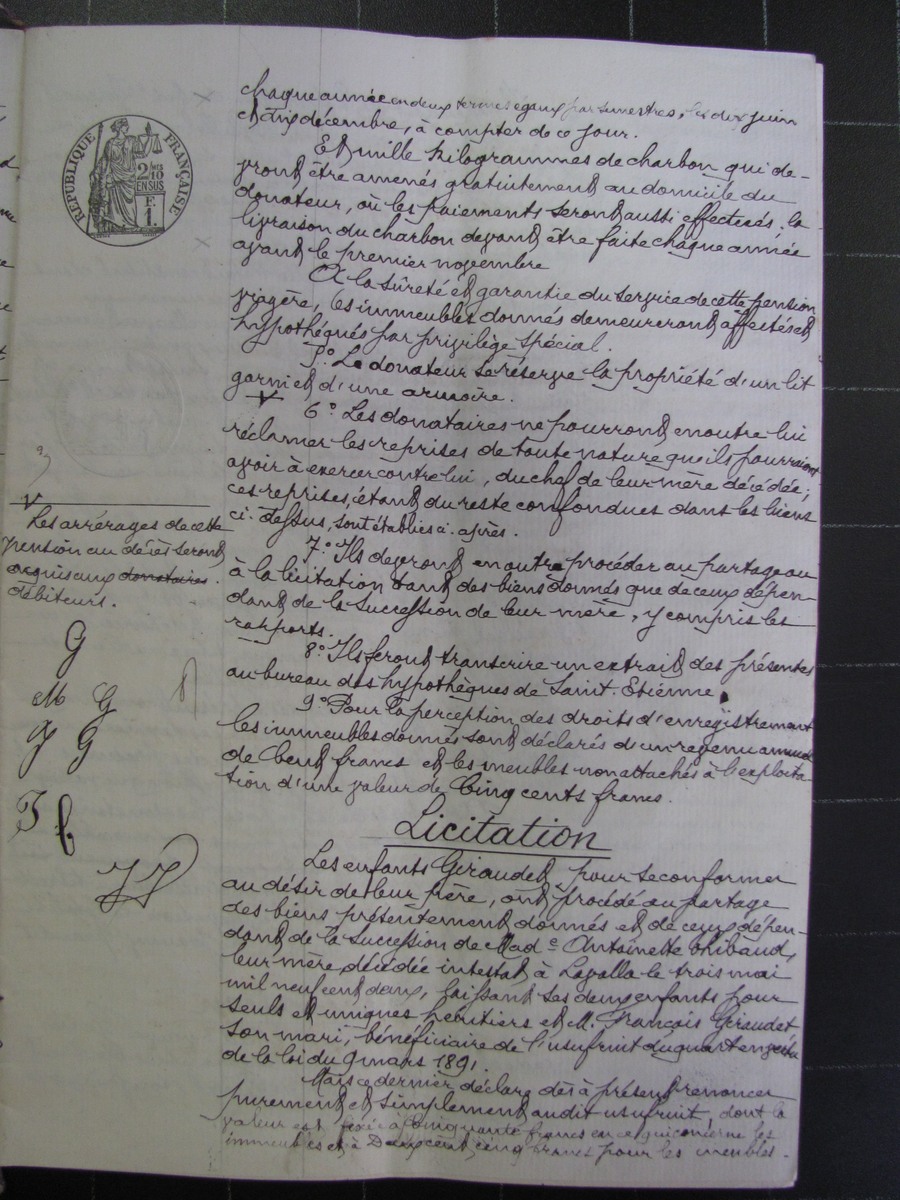 RÉPUBLIQUE FRANÇAISE
2/10
EN SUS
F.
1
chaque année en deux termes égaux par semestres, les dix juin
et dix décembre, à compter de ce jour.
Et mille kilogrammes de charbon qui de-
vront être amenés gratuitement au domicile du
donateur, où les paiements seront aussi effectués, la
livraison du charbon devant être faite chaque année
avant le premier novembre
A la sûreté et garantie du service de cette pension
viagère, les immeubles donnés demeureront affectés et
hypothéqués par privilège spécial.
5° Le donateur se réserve la propriété d'un lit
garni et d'une armoire.
V
6° Les donataires ne pourront en outre lui
réclamer les reprises de toute nature qu'ils pourraient
avoir à exercer contre lui, du chef de leur mère décédée;
ces reprises, étant du reste confondues dans les biens
ci-dessus, sont établies ci-après.
7° Ils devront en outre procéder au partage ou
à la licitation tant des biens donnés que de ceux dépen-
dant de la succession de leur mère, y compris les
rapports.
8° Ils feront transcrire un extrait des présentes
au bureau des hypothèques de Saint-Etienne.
9° Pour la perception des droits d'enregistrement
les immeubles donnés sont déclarés d'un revenu annuel
de Cent francs et les meubles non attachés à l'exploita-
tion d'une valeur de Cinq cents francs.
Licitation
Les enfants Giraudet, pour se conformer
au désir de leur père, ont procédé au partage
des biens présentement donnés et de ceux dépen-
dant de la succession de Made Antoinette Thibaud,
leur mère, décédée intestat à Lavalla le trois mai
mil neuf cent deux, laissant ses deux enfants pour
seuls et uniques héritiers et M. François Giraudet
son mari, bénéficiaire de l'usufruit du quart en vertu
de la loi du 9 mars 1891.
Mais ce dernier déclare dès à présent renoncer
purement et simplement audit usufruit, dont la
valeur est fixée à Cinquante francs en ce qui concerne les
immeubles et à Deux cent cinq francs pour les meubles.
V
Les arrérages de cette
pension au décès seront
acquis aux donataires.
débiteurs.
G
M G
J G
J
JJ